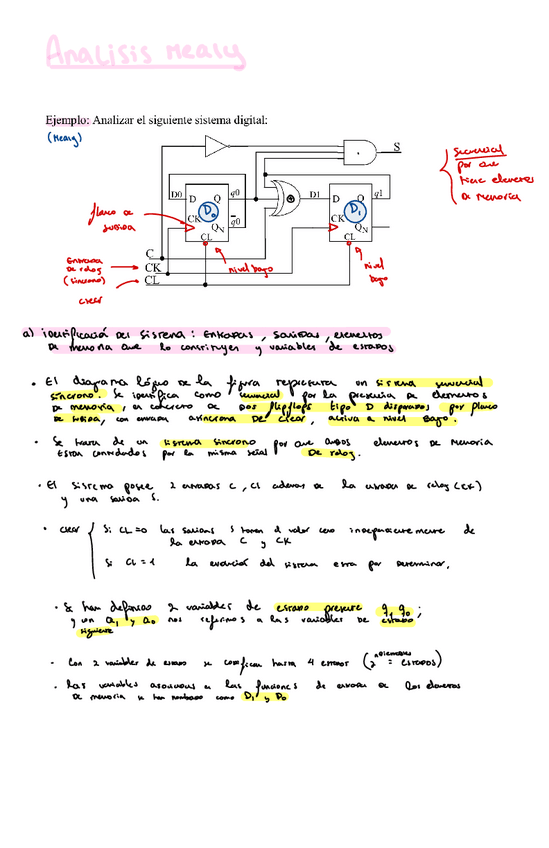 Analisis Mealy
Ejemplo: Analizar el siguiente sistema digital:
(Mealy)
S
Secuencial
por que
tiene elementos
de memoria
D0 D Q q0
D0
CK
QN q0
CL
D1 D Q q1
D1
CK
QN
CL
flanco de
subida
C
CK
CL
Entrada
de reloj
(sincrono)
clear
nivel bajo
nivel
bajo
a) identificación del sistema: Entradas, salidas, elementos
de memoria que lo constituyen y variables de estados
• El diagrama lógico de la figura representa un sistema secuencial
síncrono. Se identifica como secuencial por la presencia de elementos
de memoria, en concreto de dos flipflops tipo D disparados por flanco
de subida, con entrada asíncrona de clear, activa a nivel bajo.
• Se trata de un sistema síncrono por que ambos elementos de memoria
estan controlados por la misma señal de reloj.
• El sistema posee 2 entradas C, Cl ademas de la entrada de reloj (CK)
y una salida S.
• clear Si CL=0 las salidas S toman el valor cero independientemente de
la entrada C y CK
Si CL=1 la evolución del sistema esta por determinar.
• Se han definido 2 variables de estado presente q1 q0;
y con Q1 y Q0 nos referimos a las variables de estado
siguiente
• Con 2 variables de estado se codifican hasta 4 estados (2 nºelementos = estados)
• Las variables asociadas a las funciones de entrada de los elementos
de memoria se han nombrado como D1 y D0